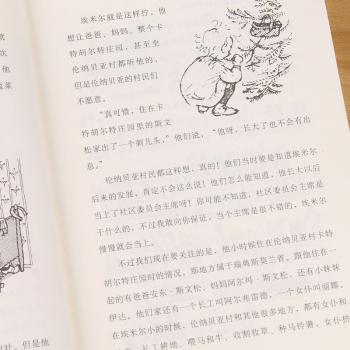 埃米尔就是这样拧,他
想让爸爸、妈妈、整个卡
特胡尔特庄园,甚至全
伦纳贝亚村都听他的,
但是伦纳贝亚村的村民们
不愿意。
“真可惜,住在卡
特胡尔特庄园里的斯文
松家出了一个刺儿头,”他们说,“他呀,长大了也不会有出
息。”
伦纳贝亚村民都这样想,真的!他们当时要是知道埃米尔
后来的发展,肯定不会这么说!他们怎么能知道,他长大以后
当上了社区委员会主席呀!你可能不知道,社区委员会主席是
干什么的,不过我敢向你保证,当个主席是很不错的,埃米尔
慢慢就会当上。
不过我们现在要关注的是,他小时候住在伦纳贝亚村卡特
胡尔特庄园时的情况,那地方属于瑞典斯莫兰省。跟他住在一
起的有爸爸安东·斯文松、妈妈阿尔玛·斯文松,还有小妹妹
伊达。他们家还有一个长工叫阿尔弗雷德,一个女仆叫丽娜,
在埃米尔小的时候,伦纳贝亚村和其他很多地方,都有女仆和
长工。长工耕地、喂马和牛、收割牧草、种马铃薯。女仆
就
次
他
蔬菜
时,但是他